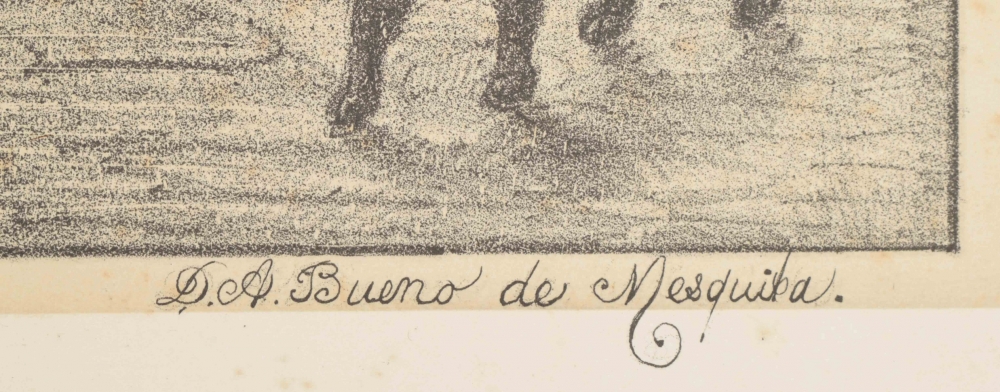 D. A. Bueno de Mesquita.